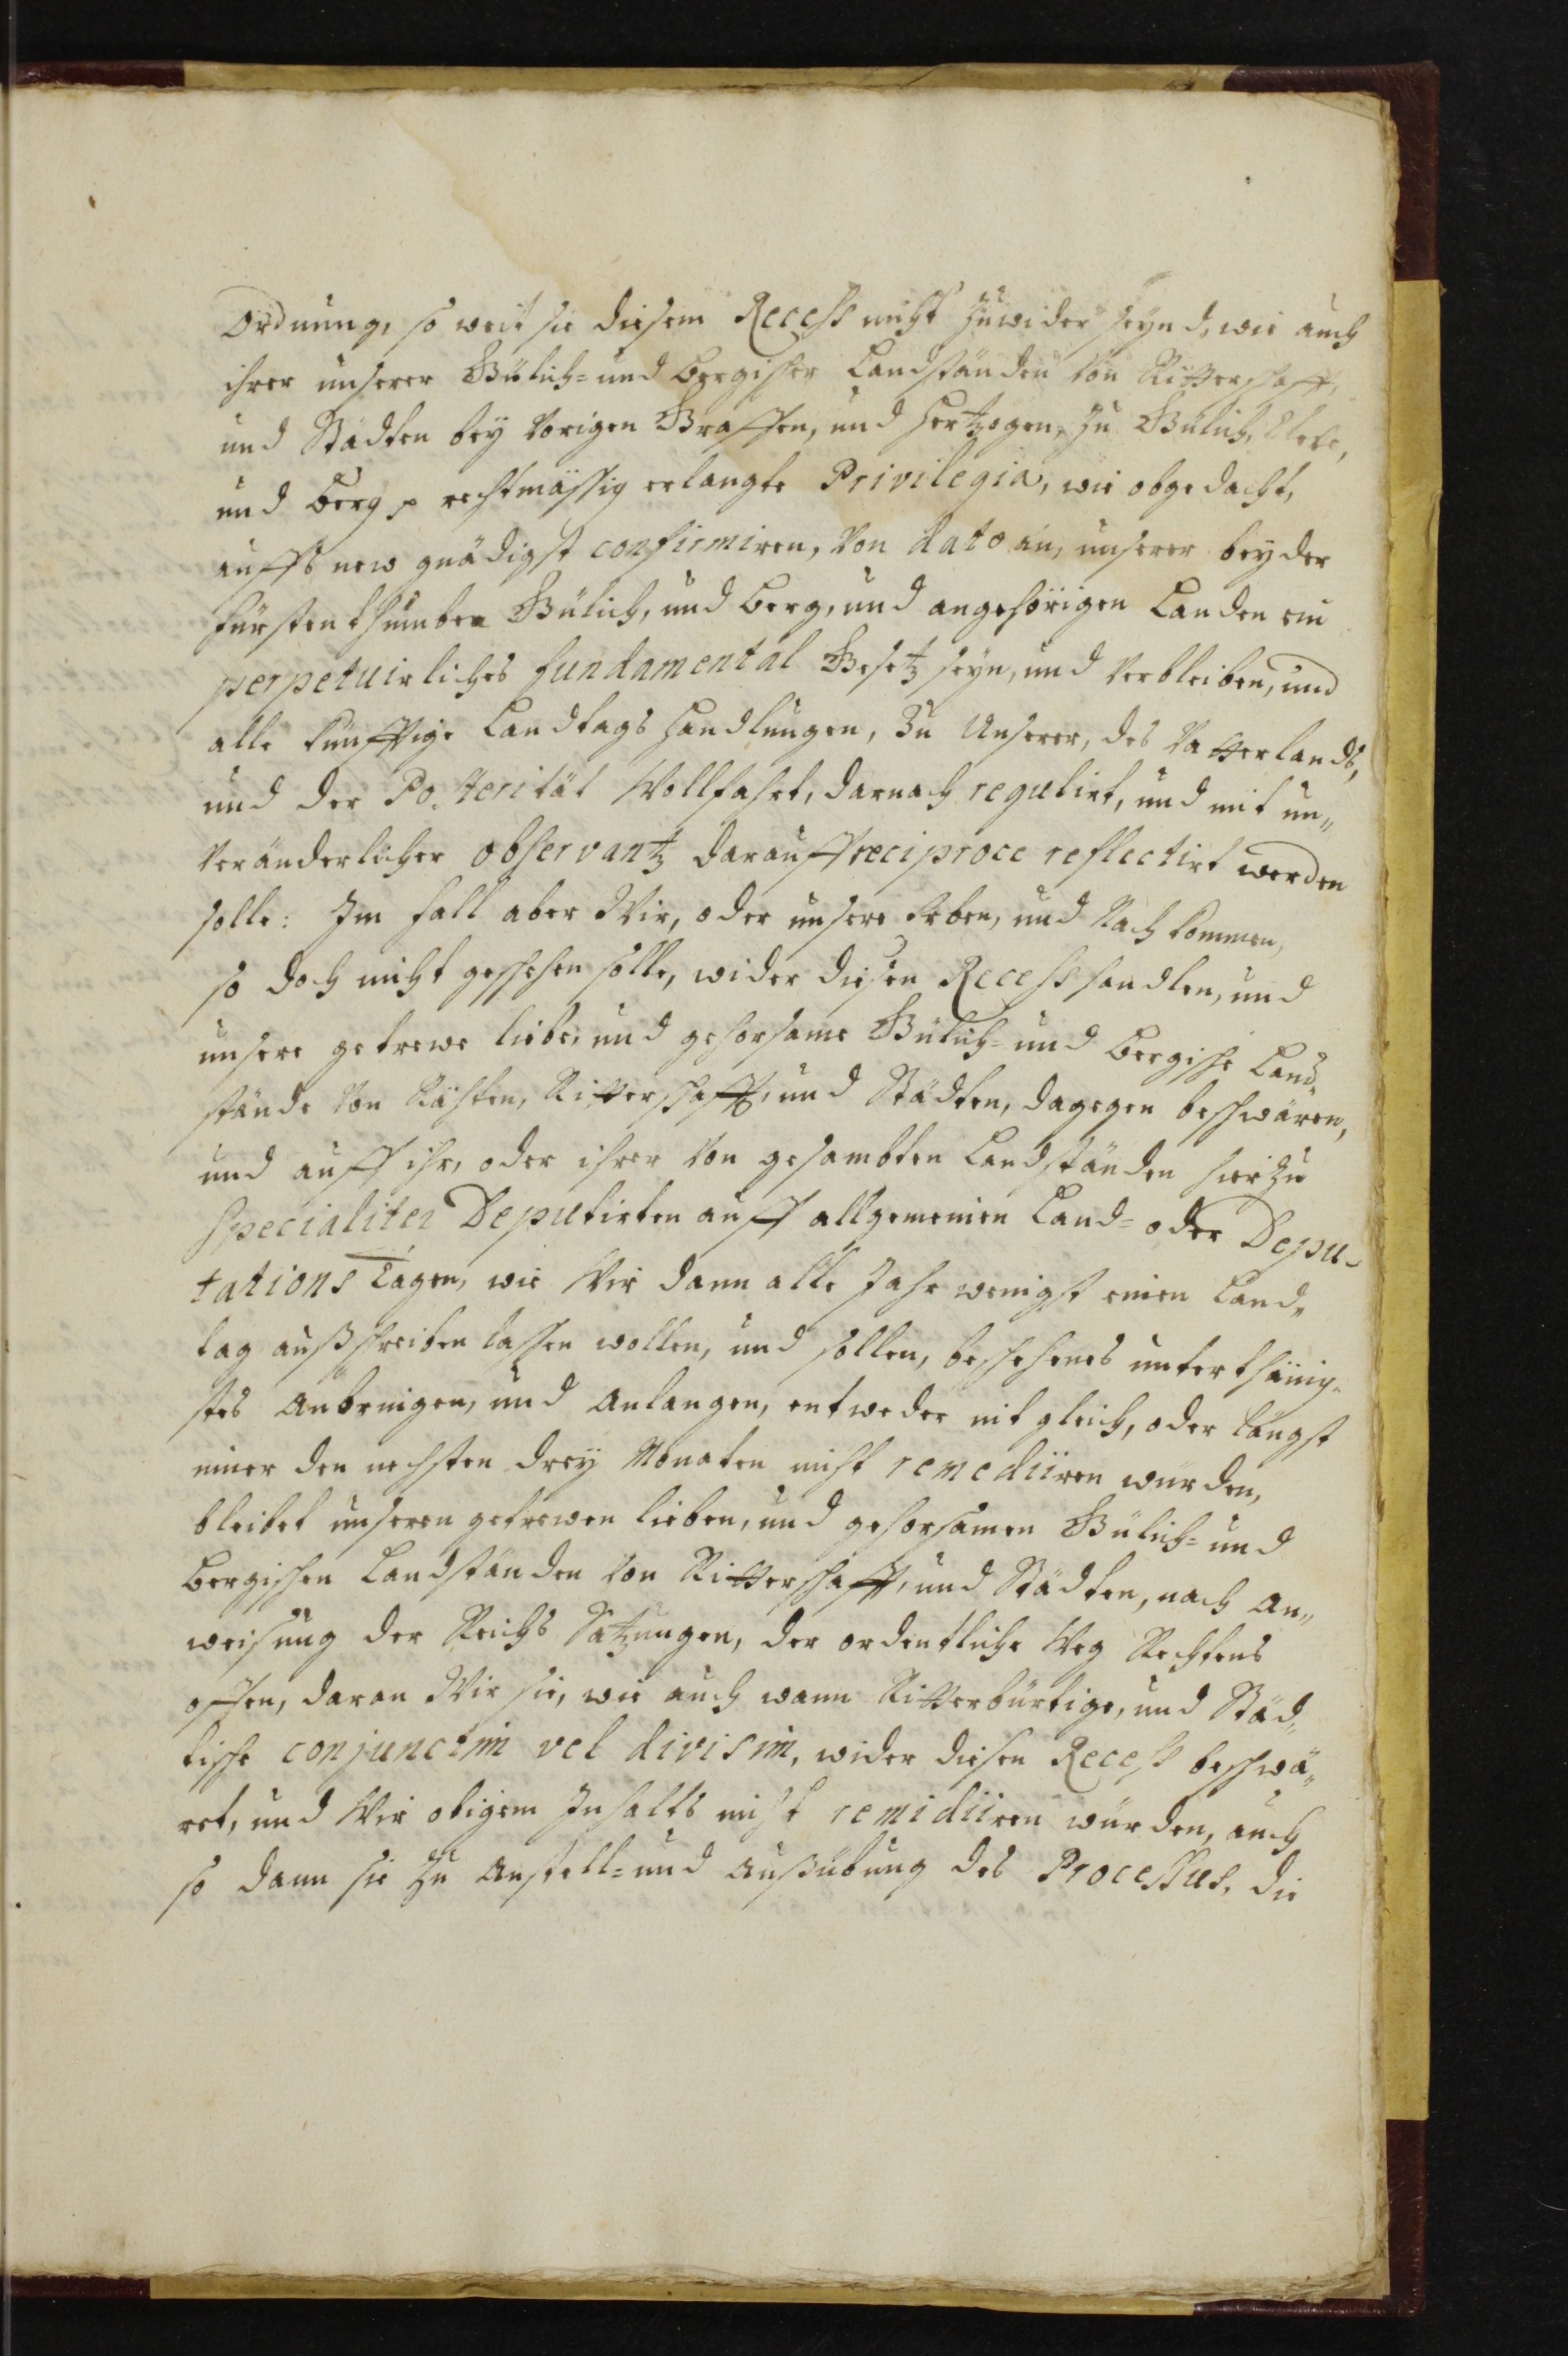 Ordnung, so weit sie diesem Recess nicht zuwider seynd, wie auch
ihrer unserer Gülich- und Bergischer Landständen von Ritterschafft,
und Städten bey vorigen Graffen, und Hertzogen, zu Gülich, Cleve,
und Berg p rechtmässig erlangte Privilegia, wie obgedacht,
auffs new gnädigst confirmiren, von dato an, unserer beyder
Fürstenthumben Gülich, und Berg, und angehörigen Landen ein
perpetuirliches fundamental Gesetz seyn, und verbleiben, und
alle künfftige Landtags Handlungen, zu Unserer, des Vatterlands,
und der Posterität Wollfahrt, darnach regulirt, und mit un„
veränderlicher observantz darauff reciproce reflectirt werden
solle: Im fall aber Wir, oder unsere Erben, und Nachkommen,
so doch nicht geschehen solle, wider diesen Recess handlen, und
unsere getrewe liebe, und gehorsame Gülich- und Bergische Land„
stände von Räthen, Ritterschafft, und Städten, dagegen beschwären,
und auff ihr, oder ihrer von gesambten Landständen hierzu
specialiter Deputirten auff allgemeinen Land- oder Depu-
tations Tägen, wie Wir dann alle Jahr wenigst einen Land„
tag außschreiben lassen wollen, und sollen, beschehenes unterthänig„
stes anbringen, und anlangen, entweder nit gleich, oder längst
inner den nechsten drey Monaten nicht remediiren würden,
bleibet unseren getrewen lieben, und gehorsamen Gülich- und
Bergischen Landständen von Ritterschafft, und Städten, nach an„
weisung der Reichs Satzungen, der ordentliche Weg Rechtens
offen, daran Wir sie, wie auch wann Ritterbürtige, und Städ„
tische conjunctim vel divisim, wider diesen Recess beschwä„
ret, und Wir obigem Inhalts nicht remidiiren würden, auch
so dann sie zu Anstell- und Außübung des Processus, die